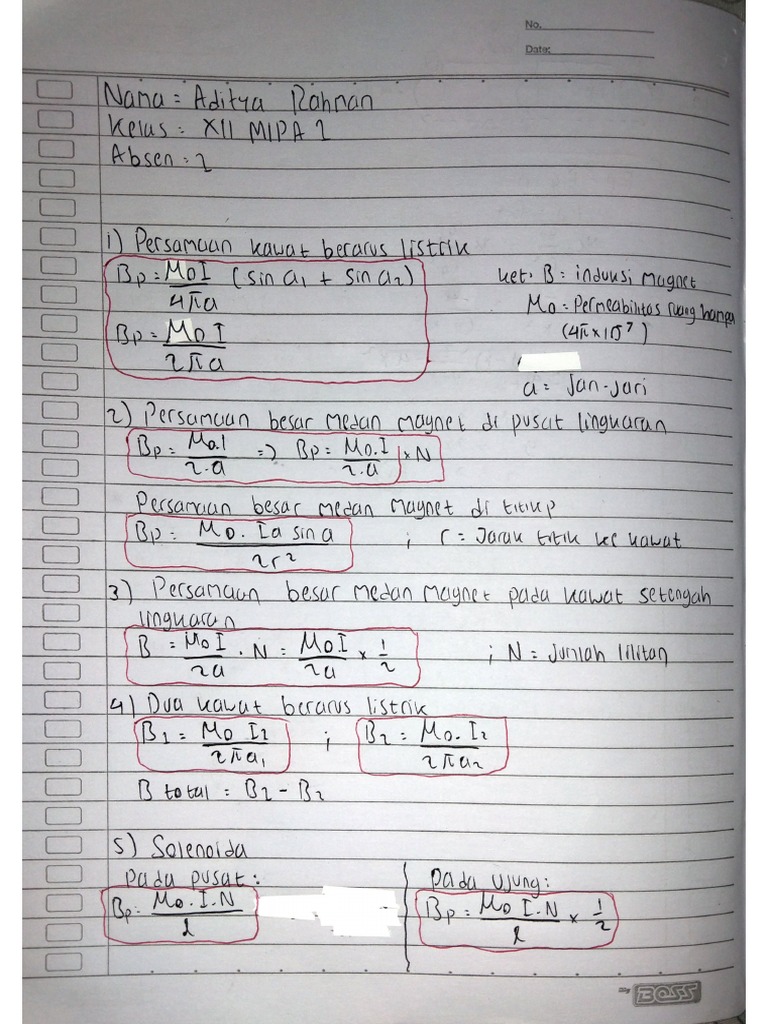 No.
Date:
Nama = Aditya Rahman
Kelas = XII MIPA 1
Absen = 2
1) Persamaan kawat berarus listrik
Bp = Mo I / 4πa (sin a₁ + sin a₂)
ket. B = induksi magnet
Mo = Permeabilitas ruang hampa
(4π × 10⁻⁷)
Bp = Mo I / 2πa
a = Jari-Jari
2) Persamaan besar medan magnet di pusat lingkaran
Bp = Mo.I / 2.a => Bp = Mo.I / 2.a × N
Persamaan besar medan magnet di titik p
Bp = Mo. I a sin a / 2r² ; r = Jarak titik ke kawat
3) Persamaan besar medan magnet pada kawat setengah
lingkaran
B = Mo I / 2a . N = Mo I / 2a × 1/2 ; N = Jumlah lilitan
4) Dua kawat berarus listrik
B₁ = Mo I₂ / 2πa₁ ; B₂ = Mo. I₂ / 2πa₂
B total = B₂ - B₂
5) Solenoida
pada pusat:
Bp = Mo.I.N / l
pada ujung:
Bp = Mo I.N / l × 1/2
My BOSS